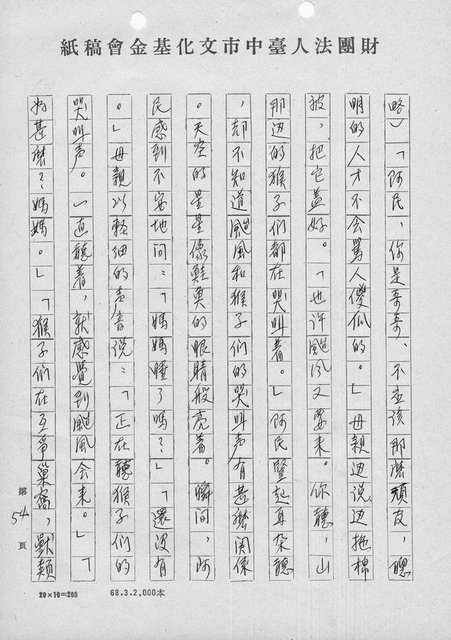 財團法人臺中市文化基金會稿紙
略)「阿民,你是哥哥,不應該那麽頑皮,聰
明的人才不会罵人傻瓜的。」母親边說边拖棉
被,把它蓋好。「也许颱风又要来。你聽,山
那边的猴子们都在哭叫着。」阿民豎起耳朵聽
,却不知道颱風和猴子们的哭叫声有甚麽関係
。天空的星星像鮭奥的眼睛般亮着。瞬间,阿
民感到不安地问:「媽媽睡了嗎?」「還沒有
。」母親以輕细的声音说:「正在聽猴子们的
哭叫声。一直聽着,就感覺到颱風会来。」「
为甚麽?媽媽。」「猴子们在互爭巢窩,獸類
第54頁
20×10=200
68.3.2,000本